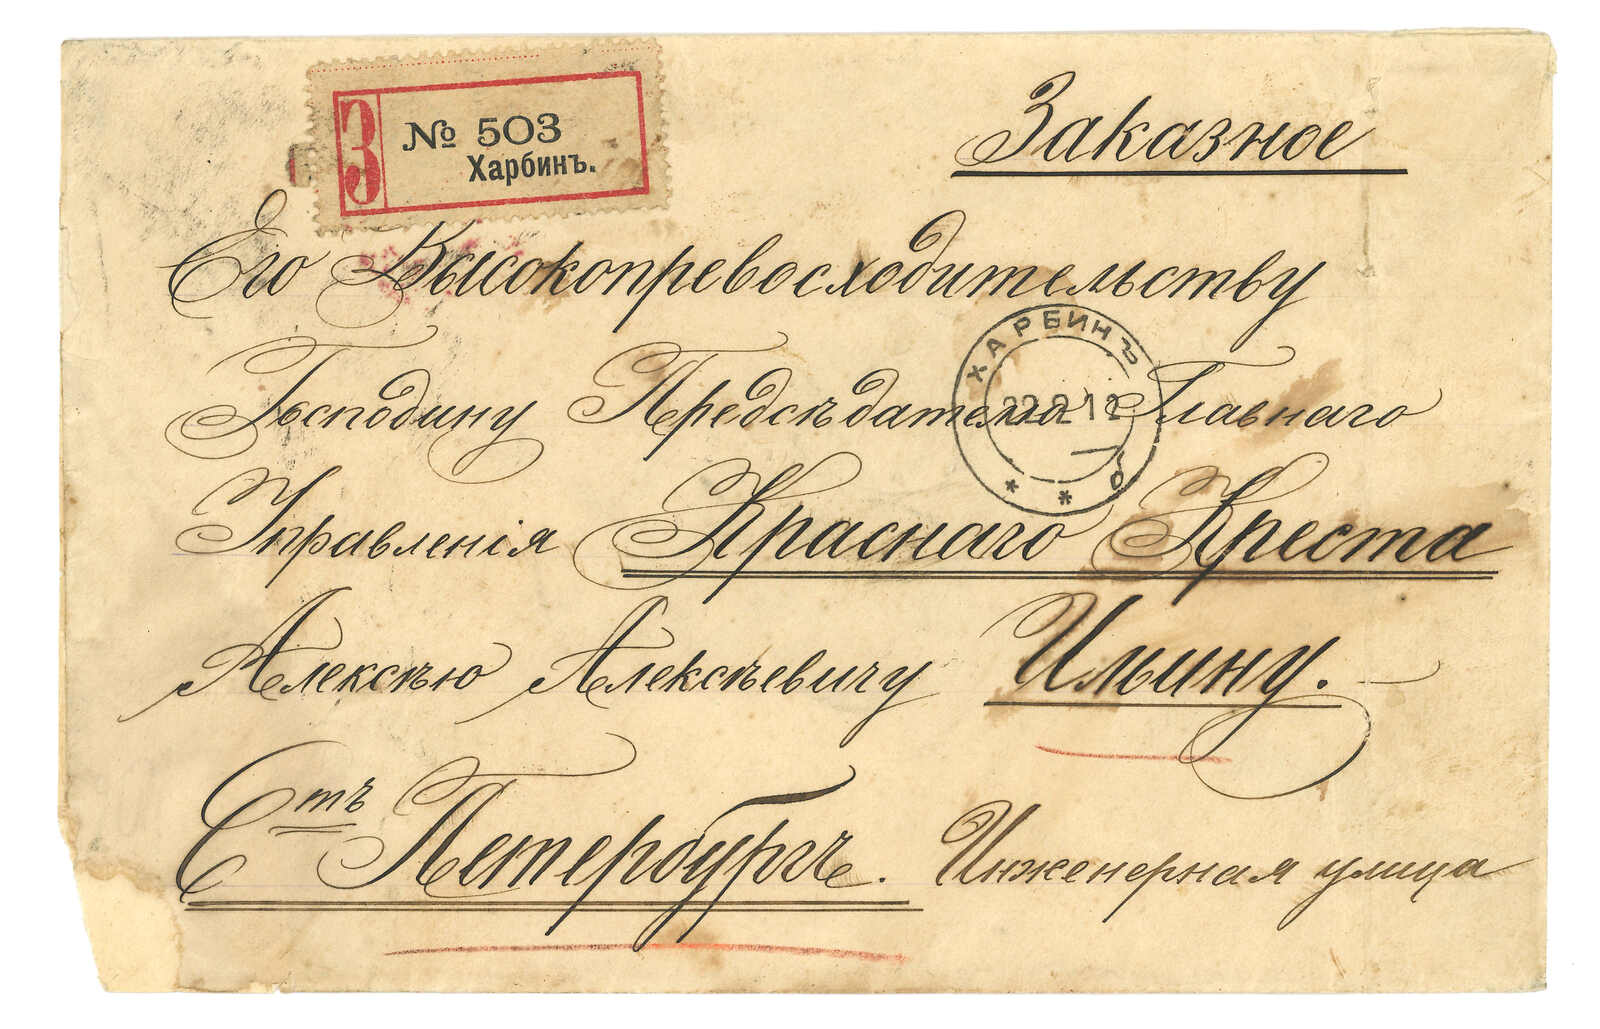 З № 503
Харбинъ.
Заказное
Его Высокопревосходительству
Господину Предсѣдателю Главнаго
Управленія Краснаго Креста
Алексѣю Алексѣевичу Ильину.
Стъ Петербургъ. Инженерная улица
ХАРБИНЪ
22 2 12